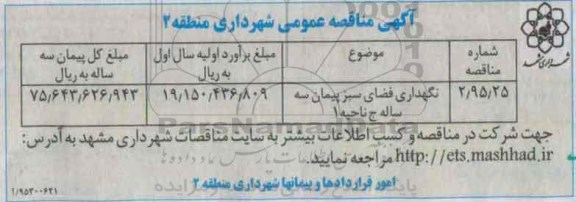 آگهی مناقصه عمومی شهرداری منطقه ۲
شماره مناقصه
موضوع
مبلغ برآورد اولیه سال اول به ریال
مبلغ کل پیمان سه ساله به ریال
۲,۹۵,۲۵
نگهداری فضای سبز پیمان سه ساله ج ناحیه ۱
۱۹,۱۵۰,۴۳۶,۸۰۹
۷۵,۶۴۳,۶۲۶,۹۴۳
جهت شرکت در مناقصه و کسب اطلاعات بیشتر به سایت مناقصات شهرداری مشهد به آدرس:
http://ets.mashhad.ir مراجعه نمایید.
امور قراردادها و پیمانها شهرداری منطقه ۲
۱/۹۵۳۰۰۶۳۱